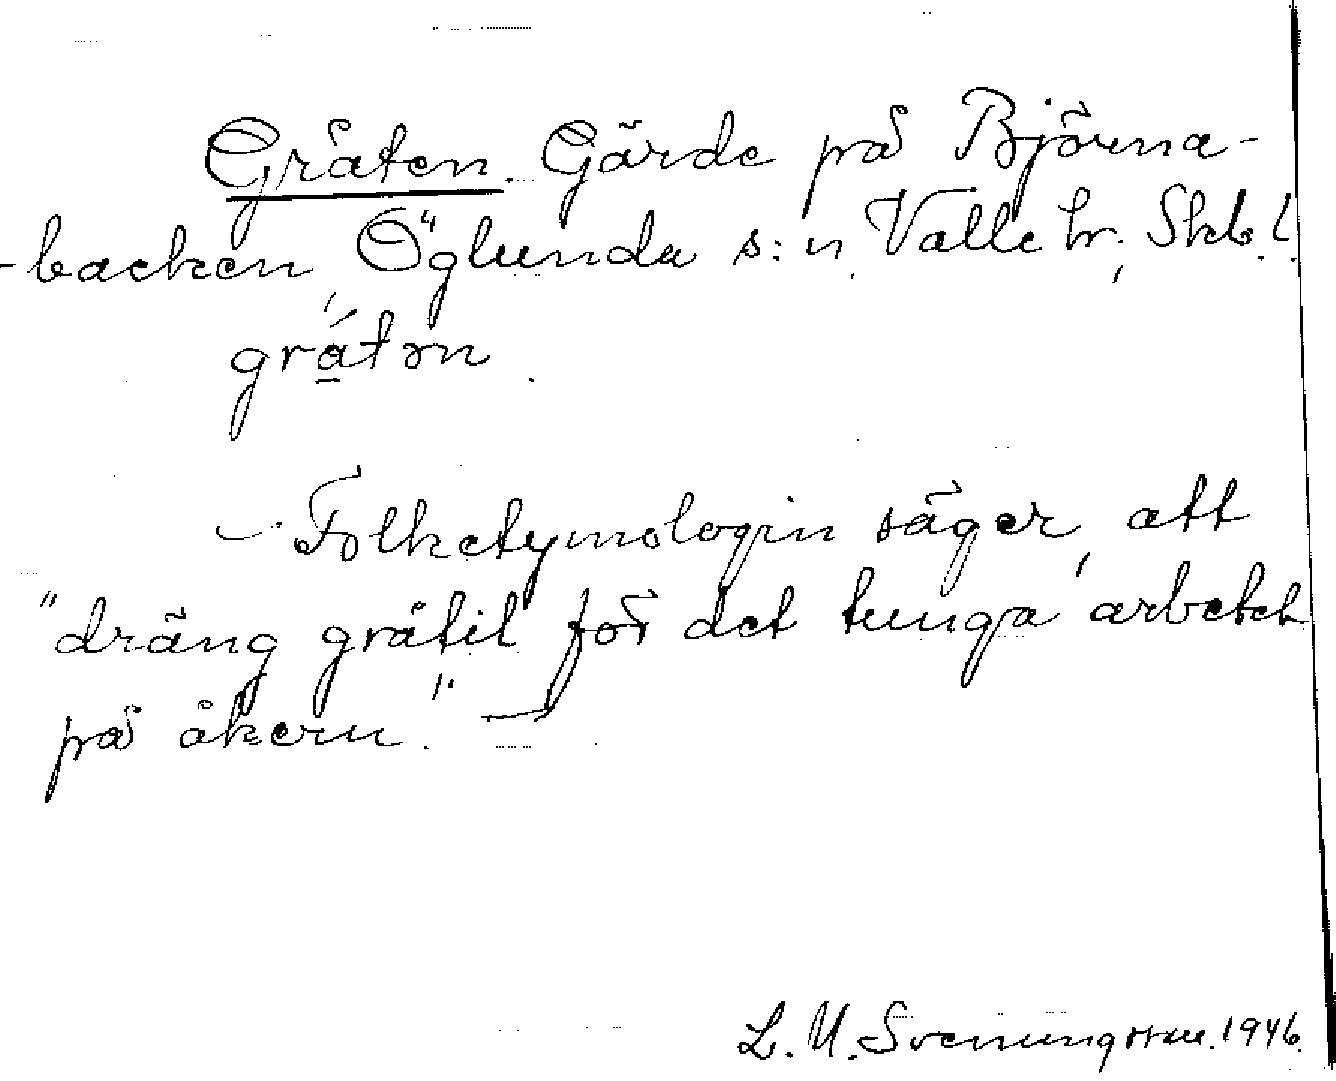 Gråten. Gärde på Björna-
-backen, Öglunda s:n, Valle hr, Skb.l.
gråtǝn.
- Folketymologin säger, att
"dräng gråtit för det tunga arbetet
på åkern." -
L. M. Svenungsson. 1946.